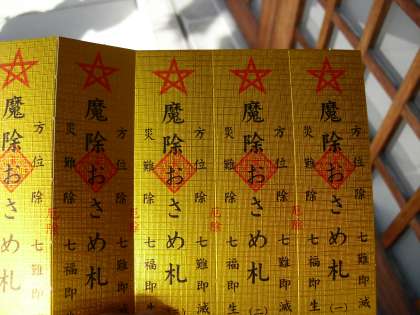 方位除
魔除おさめ札
災難除
七難即滅
七福即生
厄除
(一)
方位除
魔除おさめ札
災難除
七難即滅
七福即生
厄除
(二)
方位除
魔除おさめ札
災難除
七難即滅
七福即生
厄除
方位除
魔除おさめ札
災難除
七難即滅
七福即生
厄除
方位除
魔除おさめ札